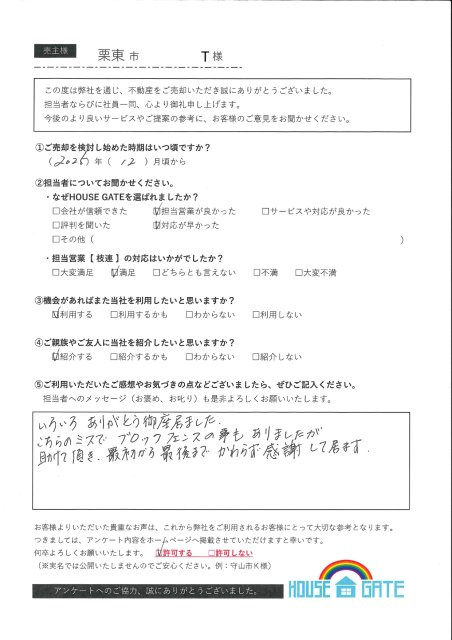 売主様
栗東市 T様
この度は弊社を通じ、不動産をご売却いただき誠にありがとうございました。
担当者ならびに社員一同、心より御礼申し上げます。
今後のより良いサービスやご提案の参考に、お客様のご意見をお聞かせください。
①ご売却を検討し始めた時期はいつ頃ですか?
(2025)年(12)月頃から
②担当者についてお聞かせください。
・なぜHOUSE GATEを選ばれましたか?
□会社が信頼できた ☑担当営業が良かった □サービスや対応が良かった
□評判を聞いた ☑対応が早かった
□その他( )
・担当営業【 枝連 】の対応はいかがでしたか?
□大変満足 ☑満足 □どちらとも言えない □不満 □大変不満
③機会があればまた当社を利用したいと思いますか?
☑利用する □利用するかも □わからない □利用しない
④ご親族やご友人に当社を紹介したいと思いますか?
☑紹介する □紹介するかも □わからない □紹介しない
⑤ご利用いただいたご感想やお気づきの点などございましたら、ぜひご記入ください。
担当者へのメッセージ(お褒め、お叱り)も是非よろしくお願いいたします。
いろいろ ありがとう御座居ました.
こちらのミスで ブロックフェンスの事も ありましたが
助けて頂き、最初から最後まで かわらず感謝して居ます.
お客様よりいただいた貴重なお声は、これから弊社をご利用されるお客様にとって大切な参考となります。
つきましては、アンケート内容をホームページへ掲載させていただけますと幸いです。
何卒よろしくお願いいたします。 ☑許可する □許可しない
(※実名では公開いたしませんのでご安心ください。例:守山市K様)
アンケートへのご協力、誠にありがとうございました。
HOUSE GATE